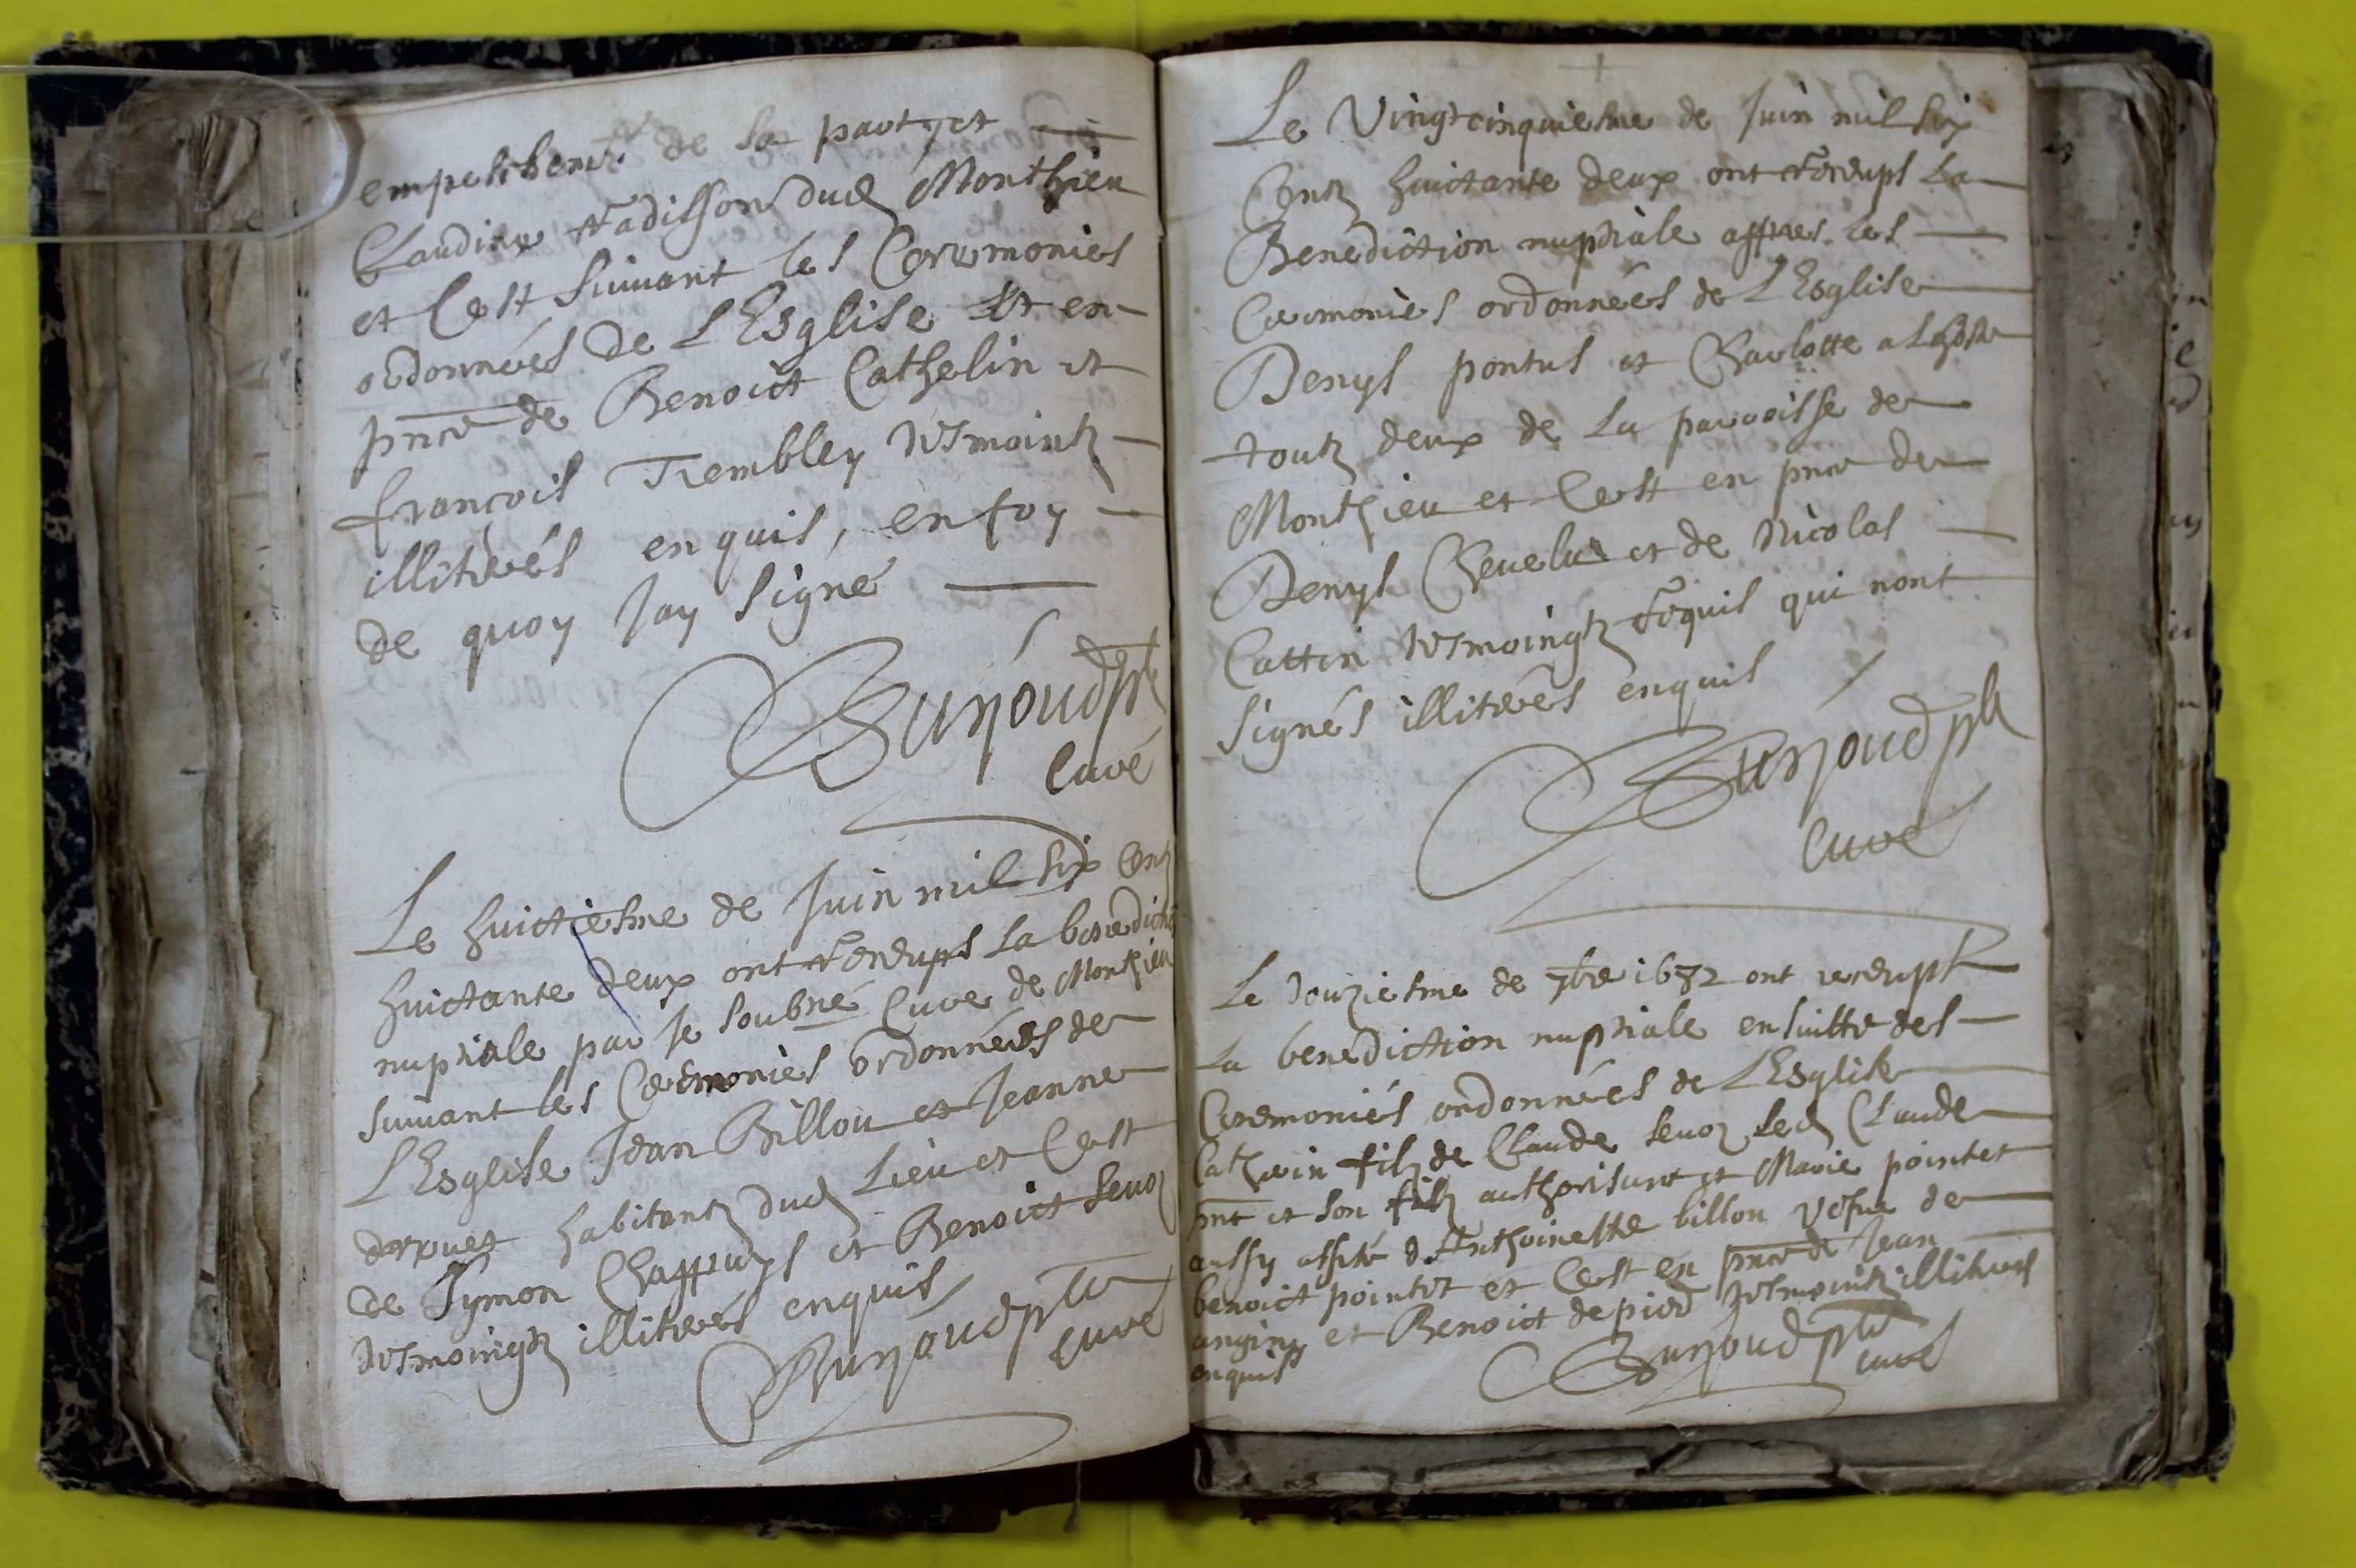 empeschemt de sa part et
Claudine radisson dud Monthieu
et Cest suivant les Ceremonies
ordonnées de L'Esglise Et en
pnce de Benoict Cathelin et
françois Trembley tesmointz
illiterés enquis, en foy
de quoy Jay signé
Bunoud pbre
Curé
Le huictiesme de Juin mil six Centz
huictante deux ont receups la benediction
nuptiale par Je soubné Curé de Monthieu
suivant les Ceremonies ordonnées de
L'Esglise Jean Billou et Jeanne
habitantz dud Lieu et Cest
de Symon Chappuys et Benoict sevoz
tesmoingtz illiterés enquis
Bunoud pbre
curé
Le Vingtcinquiesme de Juin mil six
Centz huictante deux ont receups La
Benediction nuptiale appres les
Ceremonies ordonnées de L'Esglise
Denys pontus et Charlotte
toutz deux de La parroisse de
Monthieu et Cest en pnce de
Denys Chevelu et de Nicolas
Cattin tesmoingtz requis qui nont
signés illiterés enquis
Bunoud pbre
Curé
Le douziesme de 7bre 1682 ont receupt
La benediction nuptiale ensuitte des
Ceremonies ordonnées de L'Esglise
Catherin filz de Claude sevoz Led Claude
pnt et son filz authorisant et Marie pointet
aussy assisté d'Anthoinette billon vefve de
benoict pointet et Cest en pnce de Jean
et Benoict depierd tesmointz illiterés
enquis
Bunoud pbre
curé